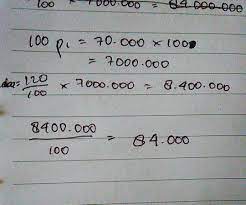 100 × 7000.000 = 84.000.000
100 P₁ = 70.000 × 100
= 7000.000
120/100 × 7000.000 = 8.400.000
8400.000/100 = 84.000